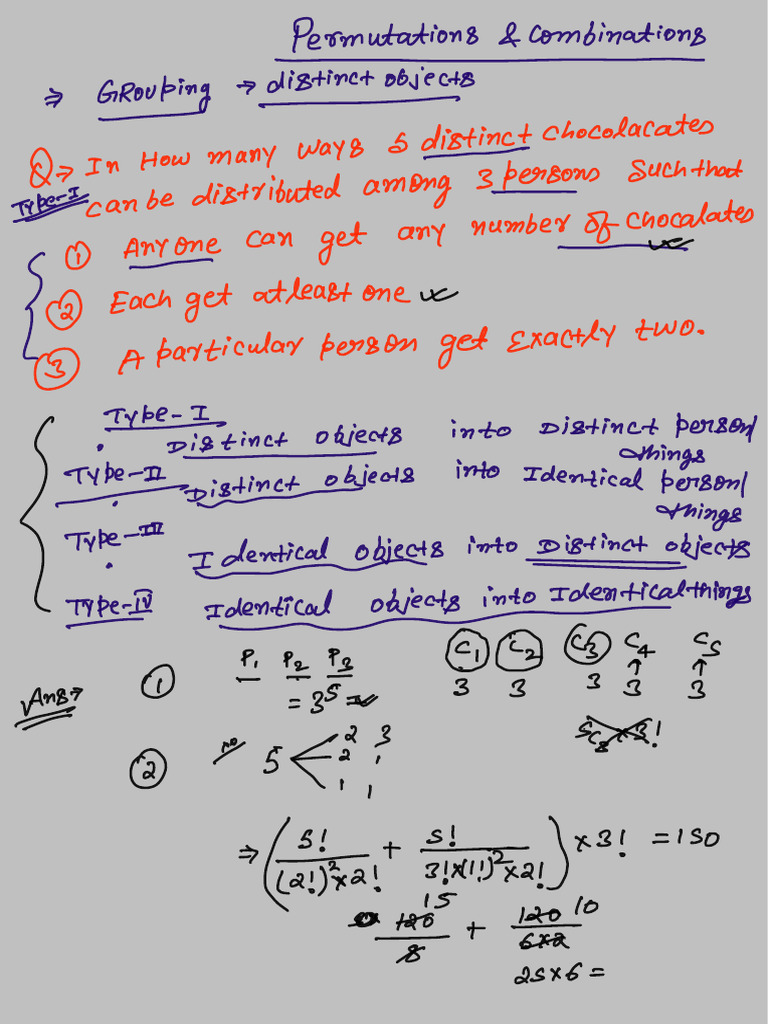 Permutations & Combinations
⇒ GRouping → distinct objects
Q→ In How many ways 5 distinct chocolacates
Type-I can be distributed among 3 persons such that
① Anyone can get any number of chocalates
② Each get atleast one
③ A particular person get Exactly two.
Type-I
Distinct objects into Distinct person/
things
Type-II Distinct objects into Identical person/
things
Type-III Identical objects into Distinct objects
Type-IV Identical objects into Identical things
Ans→ ① P₁ P₂ P₃ C₁ C₂ C₃ C₄ C₅
3 3 3 3 3
= 3⁵
⁵C₃ × 3!
② no 5 2 3
2 1
1 1
⇒ (5!/((2!)² × 2!) + 5!/(3! × (1!)² × 2!)) × 3! = 150
120/8 15 + 120/(6×2) 10
25×6 =